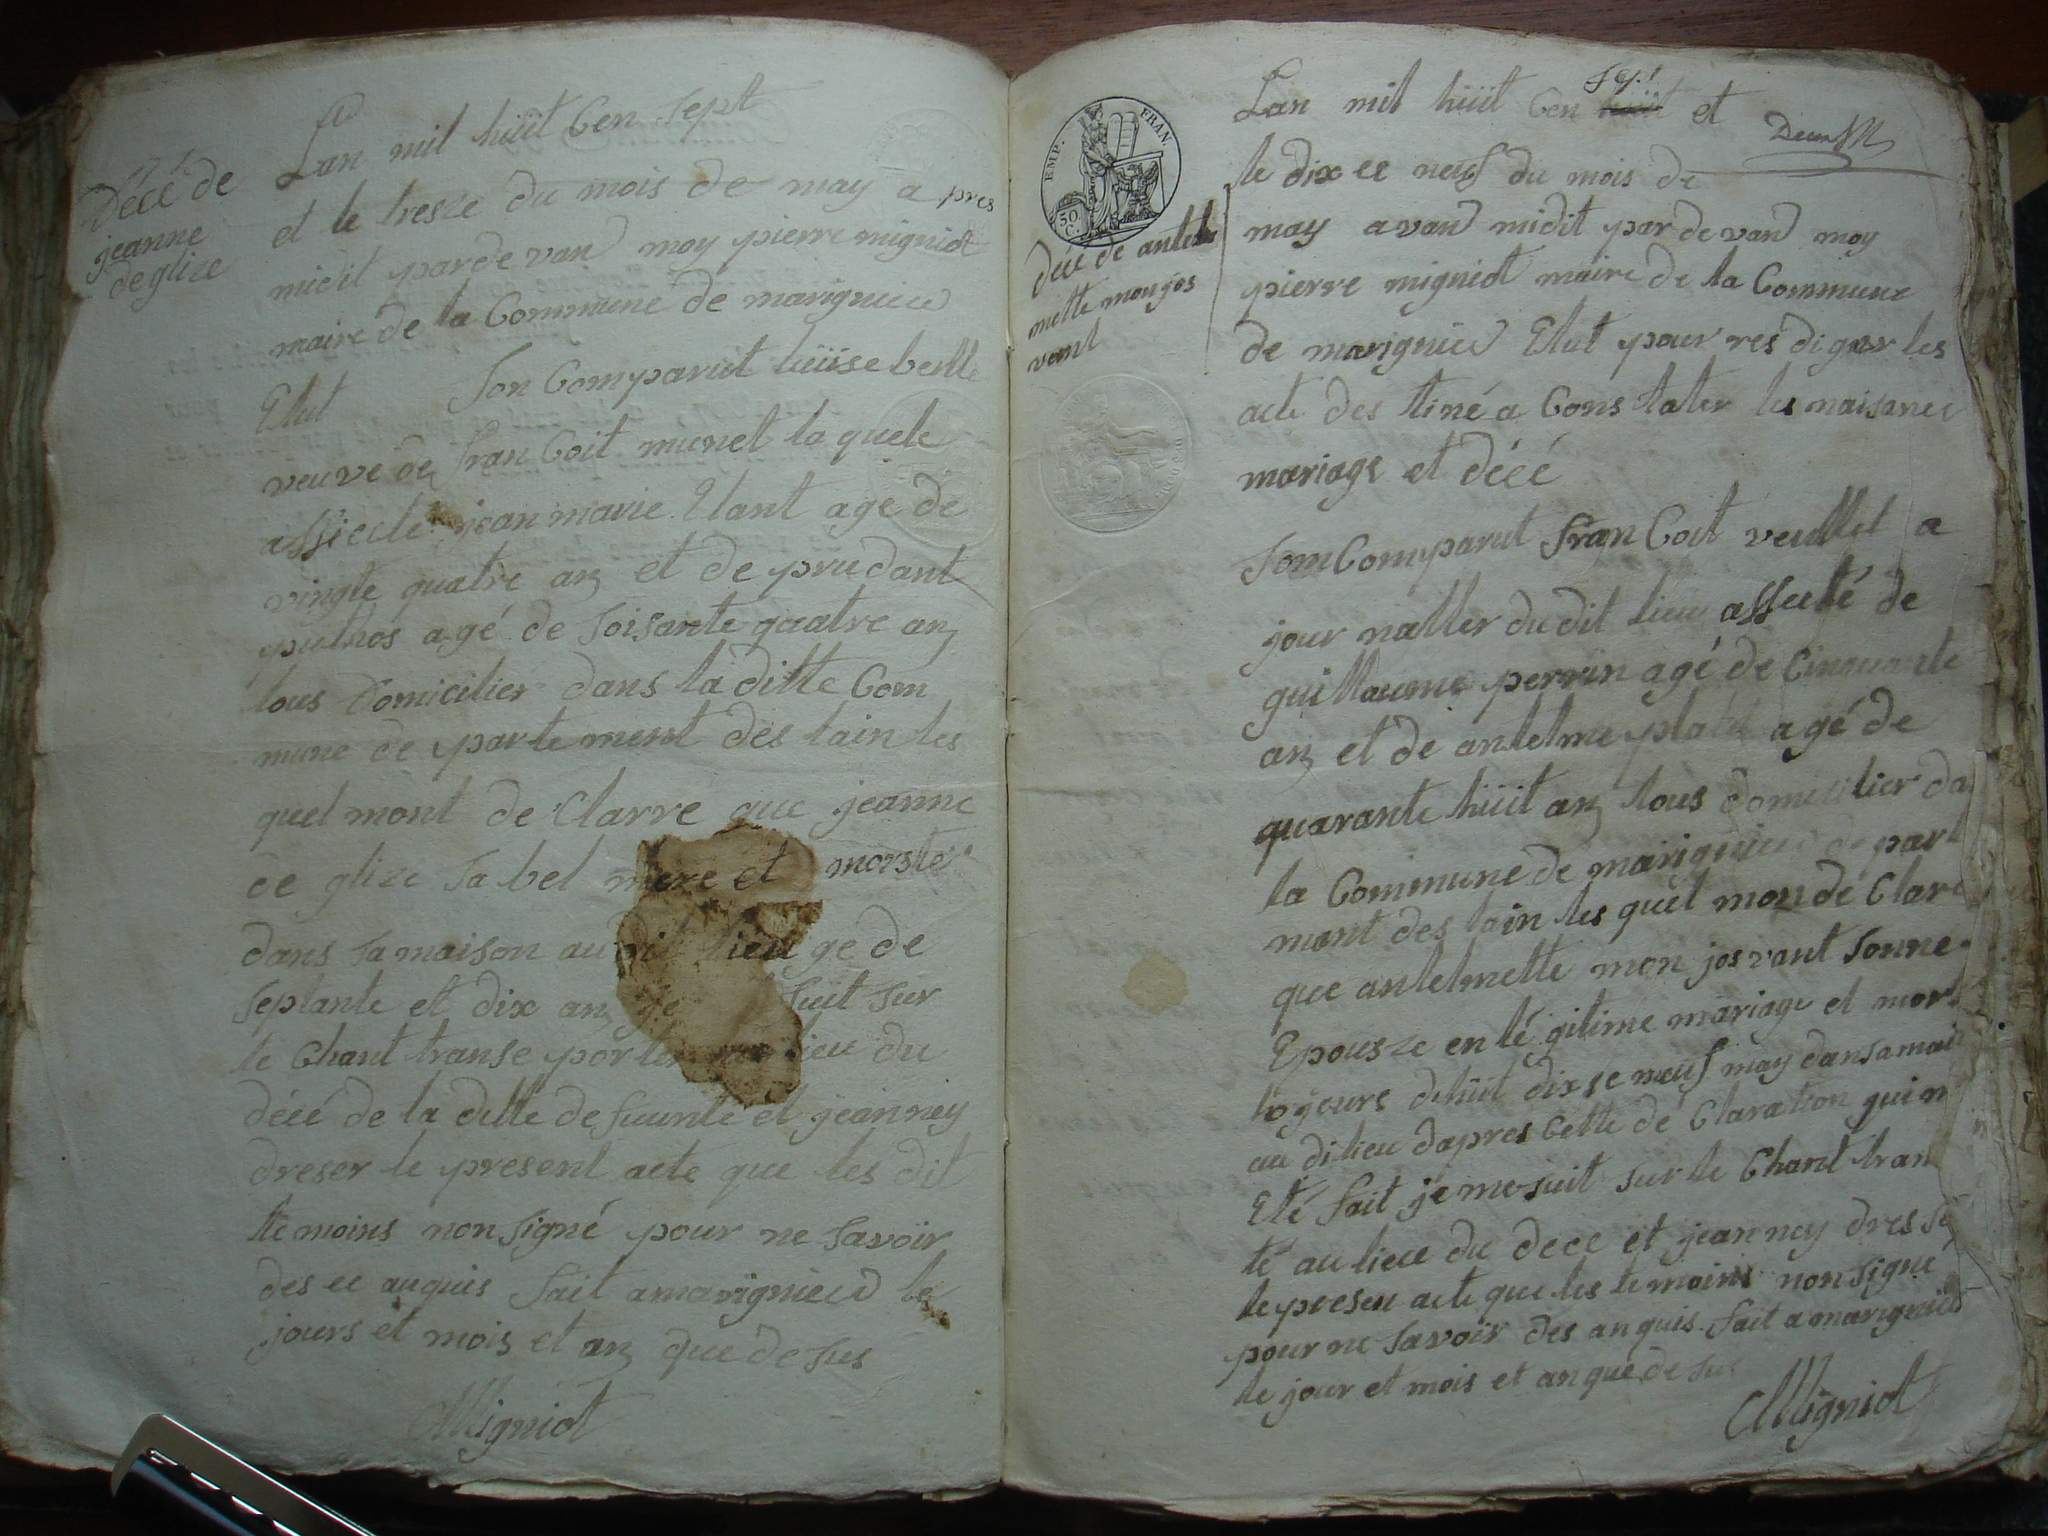 Décé de
jeanne
deglize
Lan mil hüit Cen sept
et le tresze du mois de may a pres
midit pardevan moy pierre migniot
maire de la Commune de marignieu
Elut Son Comparut
veuve de franCoit munet la quele
assiecté jean marie Etant age de
vingte quatre an et de prudant
puthos agé de soisante quatre an
tous Domicilier dans la ditte Com
mune de partement des lain les
quel mont de Clarre que jeanne
de glize sa bel mere et morste
dans sa maison au dit lieu ge de
septante et dix an je suit sur
le Chant transe porter lieu du
décé de la ditte defuunte et jean ney
dreser le present acte que les dit
te moins non signé pour ne savoir
des ce anquis fait a marignieu le
jours et mois et an que de sus
Migniot
EMP. FRAN.
50 C.
dece de antel
mette monjos
vant
Lan mil hüit Cen hüit sept et
le dix ee neuf du mois de
may avan midit par de van moy
pierre migniot maire de la Commune
de marignieu Elut pour res diger les
acte des tiné a Cons tater les naisance
mariage et décé
Som Comparut franCoit veullet a
jour naller du dit lieu assecté de
guillaume perrin agé de Cinquante
an et de antelme agé de
quarante hüit an tous domicilier da
la Commune de marignieu de part
mant des lain les quel mon dé Clare
que antelmette mon jos vant sonne
Epousze en lé gitime mariage et mort
jours dehüit dixse neuf may dansa mai
au di lieu dapres Cette dé Claration qui m
Eté fait je me suit sur le Chant tran
té au lieu du dece et jean ney dres se
le presen acte que les te moins non signé
pour ne savoir des anquis fait a marignieu
le jour et mois et an que de sus
Migniot